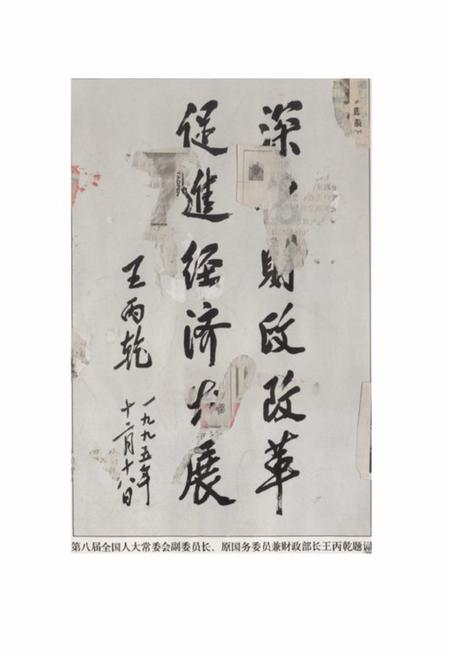 深 财政改革
促進经济发展
王丙乾
一九九五年
十二月十八日
第八届全国人大常委会副委员长、原国务委员兼财政部长王丙乾题词